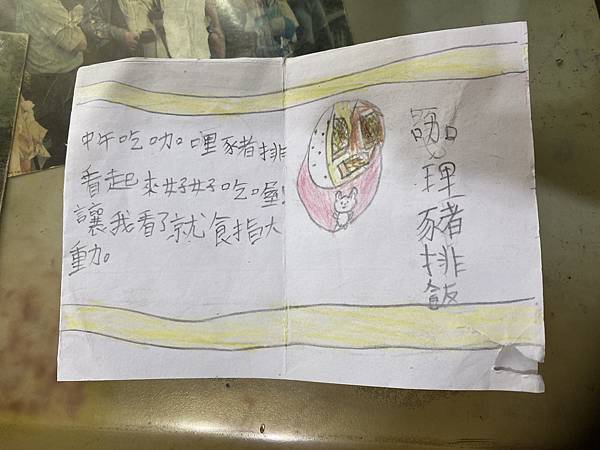 中午吃咖哩豬排
看起來好好吃喔!
讓我看了就食指大
動。
咖哩豬排飯